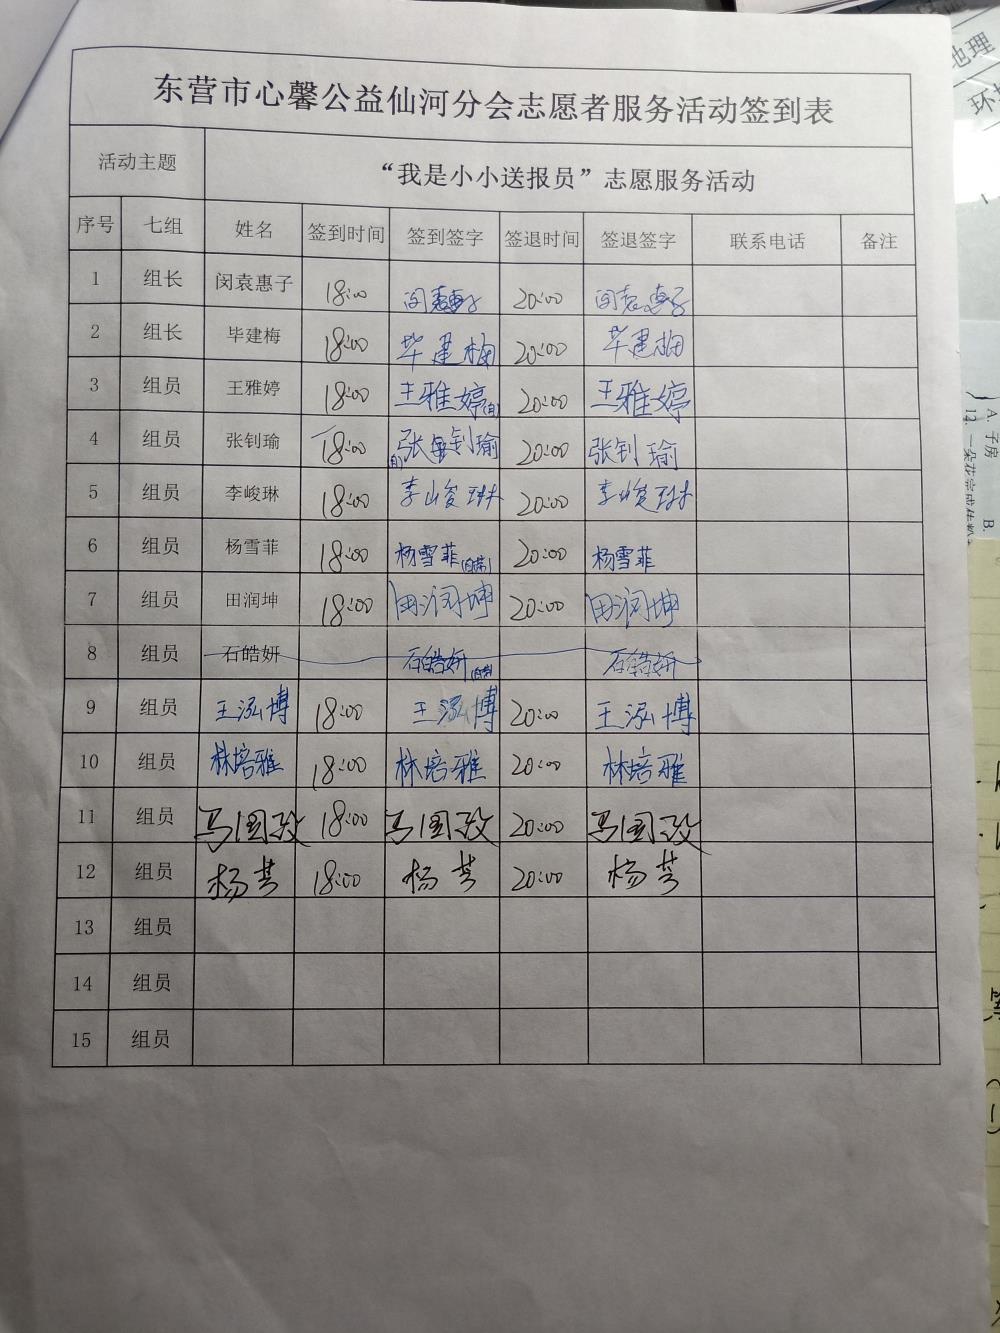 东营市心馨公益仙河分会志愿者服务活动签到表
活动主题 “我是小小送报员”志愿服务活动
序号 七组 姓名 签到时间 签到签字 签退时间 签退签字 联系电话 备注
1 组长 闵袁惠子 18:00 闵袁惠子 20:00 闵袁惠子
2 组长 毕建梅 18:00 毕建梅 20:00 毕建梅
3 组员 王雅婷 18:00 王雅婷 20:00 王雅婷
4 组员 张钊瑜 18:00 张钊瑜 20:00 张钊瑜
5 组员 李峻琳 18:00 李峻琳 20:00 李峻琳
6 组员 杨雪菲 18:00 杨雪菲 20:00 杨雪菲
7 组员 田润坤 18:00 田润坤 20:00 田润坤
8 组员 石皓妍 石皓妍 石皓妍
9 组员 王泓博 18:00 王泓博 20:00 王泓博
10 组员 林培雅 18:00 林培雅 20:00 林培雅
11 组员 马国政 18:00 马国政 20:00 马国政
12 组员 杨芸 18:00 杨芸 20:00 杨芸
13 组员
14 组员
15 组员
地理
A. 子房
B.